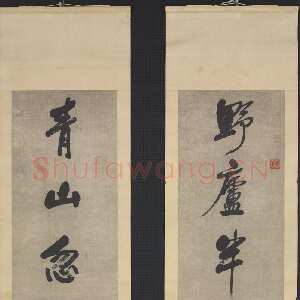 野廬半
青山忽
Shufawang.CN